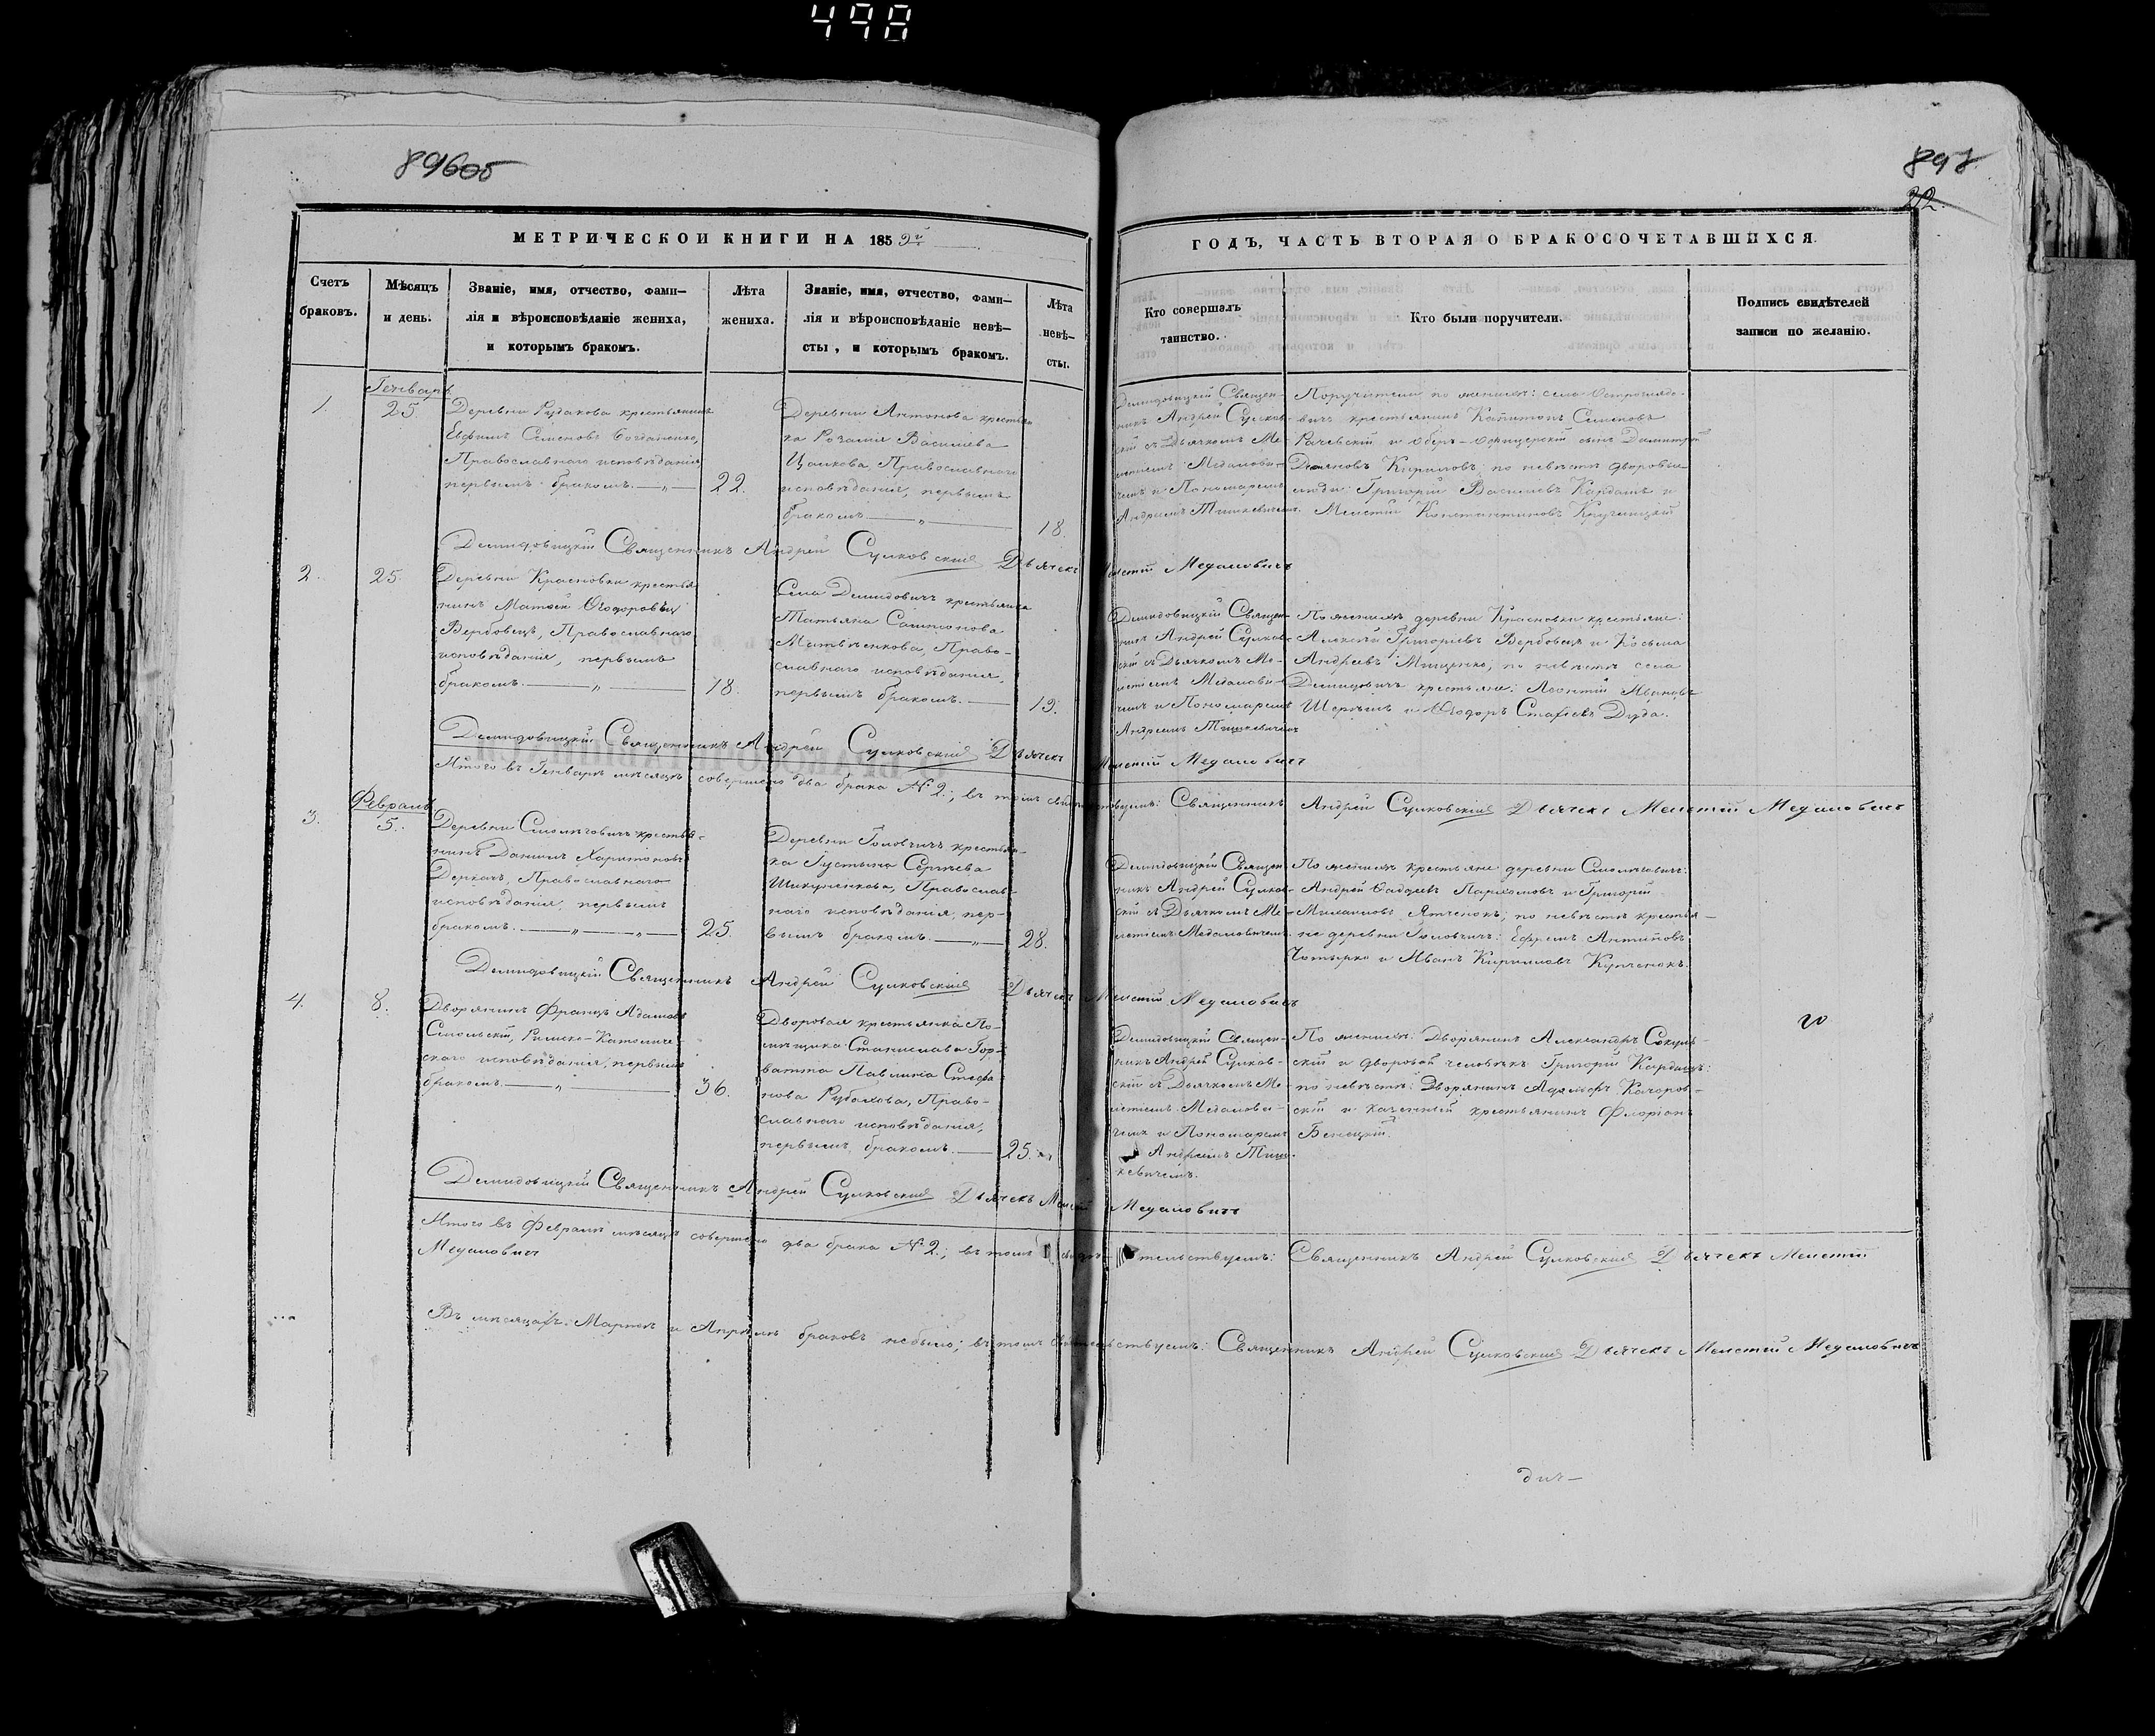 498
896об
898
22.
МЕТРИЧЕСКОИ КНИГИ НА 1859й
ГОДЪ, ЧАСТЬ ВТОРАЯ О БРАКОСОЧЕТАВШИХСЯ.
Счетъ
браковъ.
Мѣсяцъ
и день.
Званіе, имя, отчество, фами—
лія и вѣроисповѣданіе жениха,
и которымъ бракомъ.
Лѣта
жениха.
Званіе, имя, отчество, фами—
лія и вѣроисповѣданіе невѣ—
сты, и которымъ бракомъ.
Лѣта
невѣ—
сты.
Кто совершалъ
таинство.
Кто были поручители.
Подпись свидѣтелей
записи по желанію.
1.
Генварь
25.
Деревни Рудакова крестьянинъ
Евфимъ Семеновъ Богданенко,
Православнаго исповѣданія,
первымъ бракомъ. — „ —
22.
Деревни Антонова крестьян
ка Розалія Василева
Цалкова, Православнаго
исповѣданія, первымъ
бракомъ. — „ —
18.
Демидовицкій Священ-
никъ Андрей Сулков-
скій съ Дьячкомъ Ме-
летіемъ Медалови-
чемъ и Пономаремъ
Андреемъ Тишкевичемъ.
Поручители по женихѣ: села Острогляdo-
вичъ крестьянинъ Капитонъ Семеновъ
Рачевскій и Оберъ-Офицерскій сынъ Димитрій
Демяновъ Кириловъ; по невѣстѣ дворовые
люди: Григорій Василевъ Кардашъ и
Мелетій Константиновъ Кручицкій
Демидовицкій Священникъ Андрей Сулковскій Дьячекъ Мелетій Медаловичъ
2.
25.
Деревни Красновки крестья
нинъ Матѳей Ѳеодоровъ
Вербовецъ, Православнаго
исповѣданія, первымъ
бракомъ. — „ —
18.
Села Демидовичъ крестьянка
Татьяна Самсонова
Матвѣенкова, Право-
славнаго исповѣданія,
первымъ бракомъ. —
19.
Демидовицкій Священ-
никъ Андрей Сулков-
скій съ Дьячкомъ Ме-
летіемъ Медалови-
чемъ и Пономаремъ
Андреемъ Тишкевичемъ
По женихѣ деревни Красновки крестьяне:
Алексѣй Григоріевъ Вербовецъ и Косьма
Андреевъ Мищенко; по невѣстѣ села
Демидовичъ крестьяне: Леонтій Ивановъ
и Ѳеодоръ Дуда.
Демидовицкій Священникъ Андрей Сулковскій Дьячекъ Мелетій Медаловичъ
Итого въ Генварѣ мѣсяцѣ совершено два брака № 2.; въ томъ свидѣтельствуемъ: Священникъ Андрей Сулковскій Дьячекъ Мелетій Медаловичъ
3.
Февраль.
5.
Деревни Смолѣговичъ крестья-
нинъ Даніилъ Харитоновъ
Деркачъ, Православнаго
исповѣданія, первымъ
бракомъ. — „ — „ —
25.
Деревни Головчичъ крестьян-
ка Густына Сергѣева
Шикуленкова, Православ-
наго исповѣданія, пер-
вымъ бракомъ. — „ —
28.
Демидовицкій Священ-
никъ Андрей Сулков-
скій съ Дьячкомъ Ме-
летіемъ Медаловичемъ.
По женихѣ крестьяне деревни Смолѣговичъ:
Андрей Ѳадѣевъ Пархомовъ и Григорій
Михаиловъ Ятченокъ; по невѣстѣ крестья-
не деревни Головчичъ: Ефремъ Антиповъ
Чотырко и Иванъ Кириловъ Купченокъ.
Демидовицкій Священникъ Андрей Сулковскій Дьячекъ Мелетій Медаловичъ
4.
8.
Дворянинъ Францъ Адамовъ
Смольскій, Римско-Католиче-
скаго исповѣданія, первымъ
бракомъ. — „ —
36.
Дворовая крестьянка По-
мѣщика Станислава Гор-
ватта Павлина Стефа-
нова Рубахова, Право-
славнаго исповѣданія,
первымъ бракомъ. —
25.
Демидовицкій Священ-
никъ Андрей Сулков-
скій съ Дьячкомъ Ме-
летіемъ Медалови-
чемъ и Пономаремъ
Андреемъ Тиш-
кевичемъ.
По женихѣ: Дворянинъ Александръ Сокуль-
скій и дворовой человѣкъ Григорій Кардашъ;
по невѣстѣ: Дворянинъ Адольфъ Качаров-
скій и казенный крестьянинъ Флоріанъ
Бенецкій.
Демидовицкій Священникъ Андрей Сулковскій Дьячекъ Мелетій Медаловичъ
Итого въ Февралѣ мѣсяцѣ совершено два брака № 2.; въ томъ свидѣтельствуемъ: Священникъ Андрей Сулковскій Дьячекъ Мелетій
Медаловичъ
Въ мѣсяцахъ: Мартѣ и Апрѣлѣ браковъ небыло; въ томъ свидѣтельствуемъ: Священникъ Андрей Сулковскій Дьячекъ Мелетій Медаловичъ